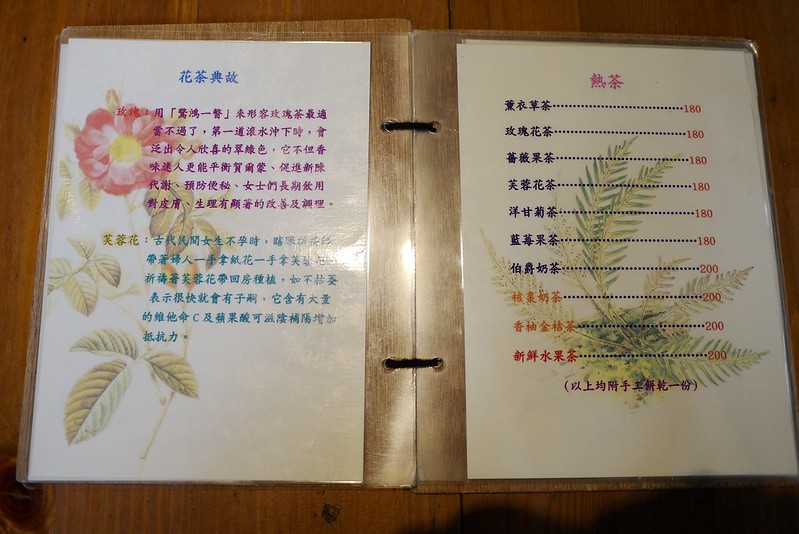 花茶典故
玫瑰：用「驚鴻一瞥」來形容玫瑰茶最適
當不過了，第一道滾水沖下時，會
泛出令人欣喜的翠綠色，它不但香
味迷人更能平衡賀爾蒙、促進新陳
代謝、預防便秘、女士們長期飲用
對皮膚、生理有顯著的改善及調理。
芙蓉花：古代民間女生不孕時，瞎眼
帶著婦人一手拿紙花一手拿芙
祈禱著芙蓉花帶回房種植，如不枯萎
表示很快就會有子嗣，它含有大量
的維他命C及蘋果酸可滋陰補陽增加
抵抗力。
熱茶
薰衣草茶 180
玫瑰花茶 180
薔薇果茶 180
芙蓉花茶 180
洋甘菊茶 180
藍莓果茶 180
伯爵奶茶 200
桂棗奶茶 200
香柚金桔茶 200
新鮮水果茶 200
(以上均附手工餅乾一份)